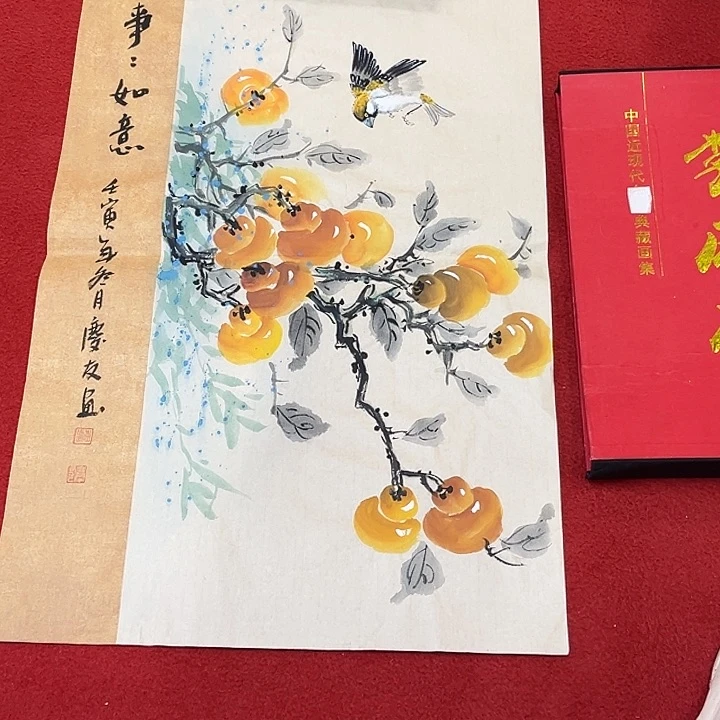 事：如意
壬寅年冬月慶友画
中国近现代
典藏画集